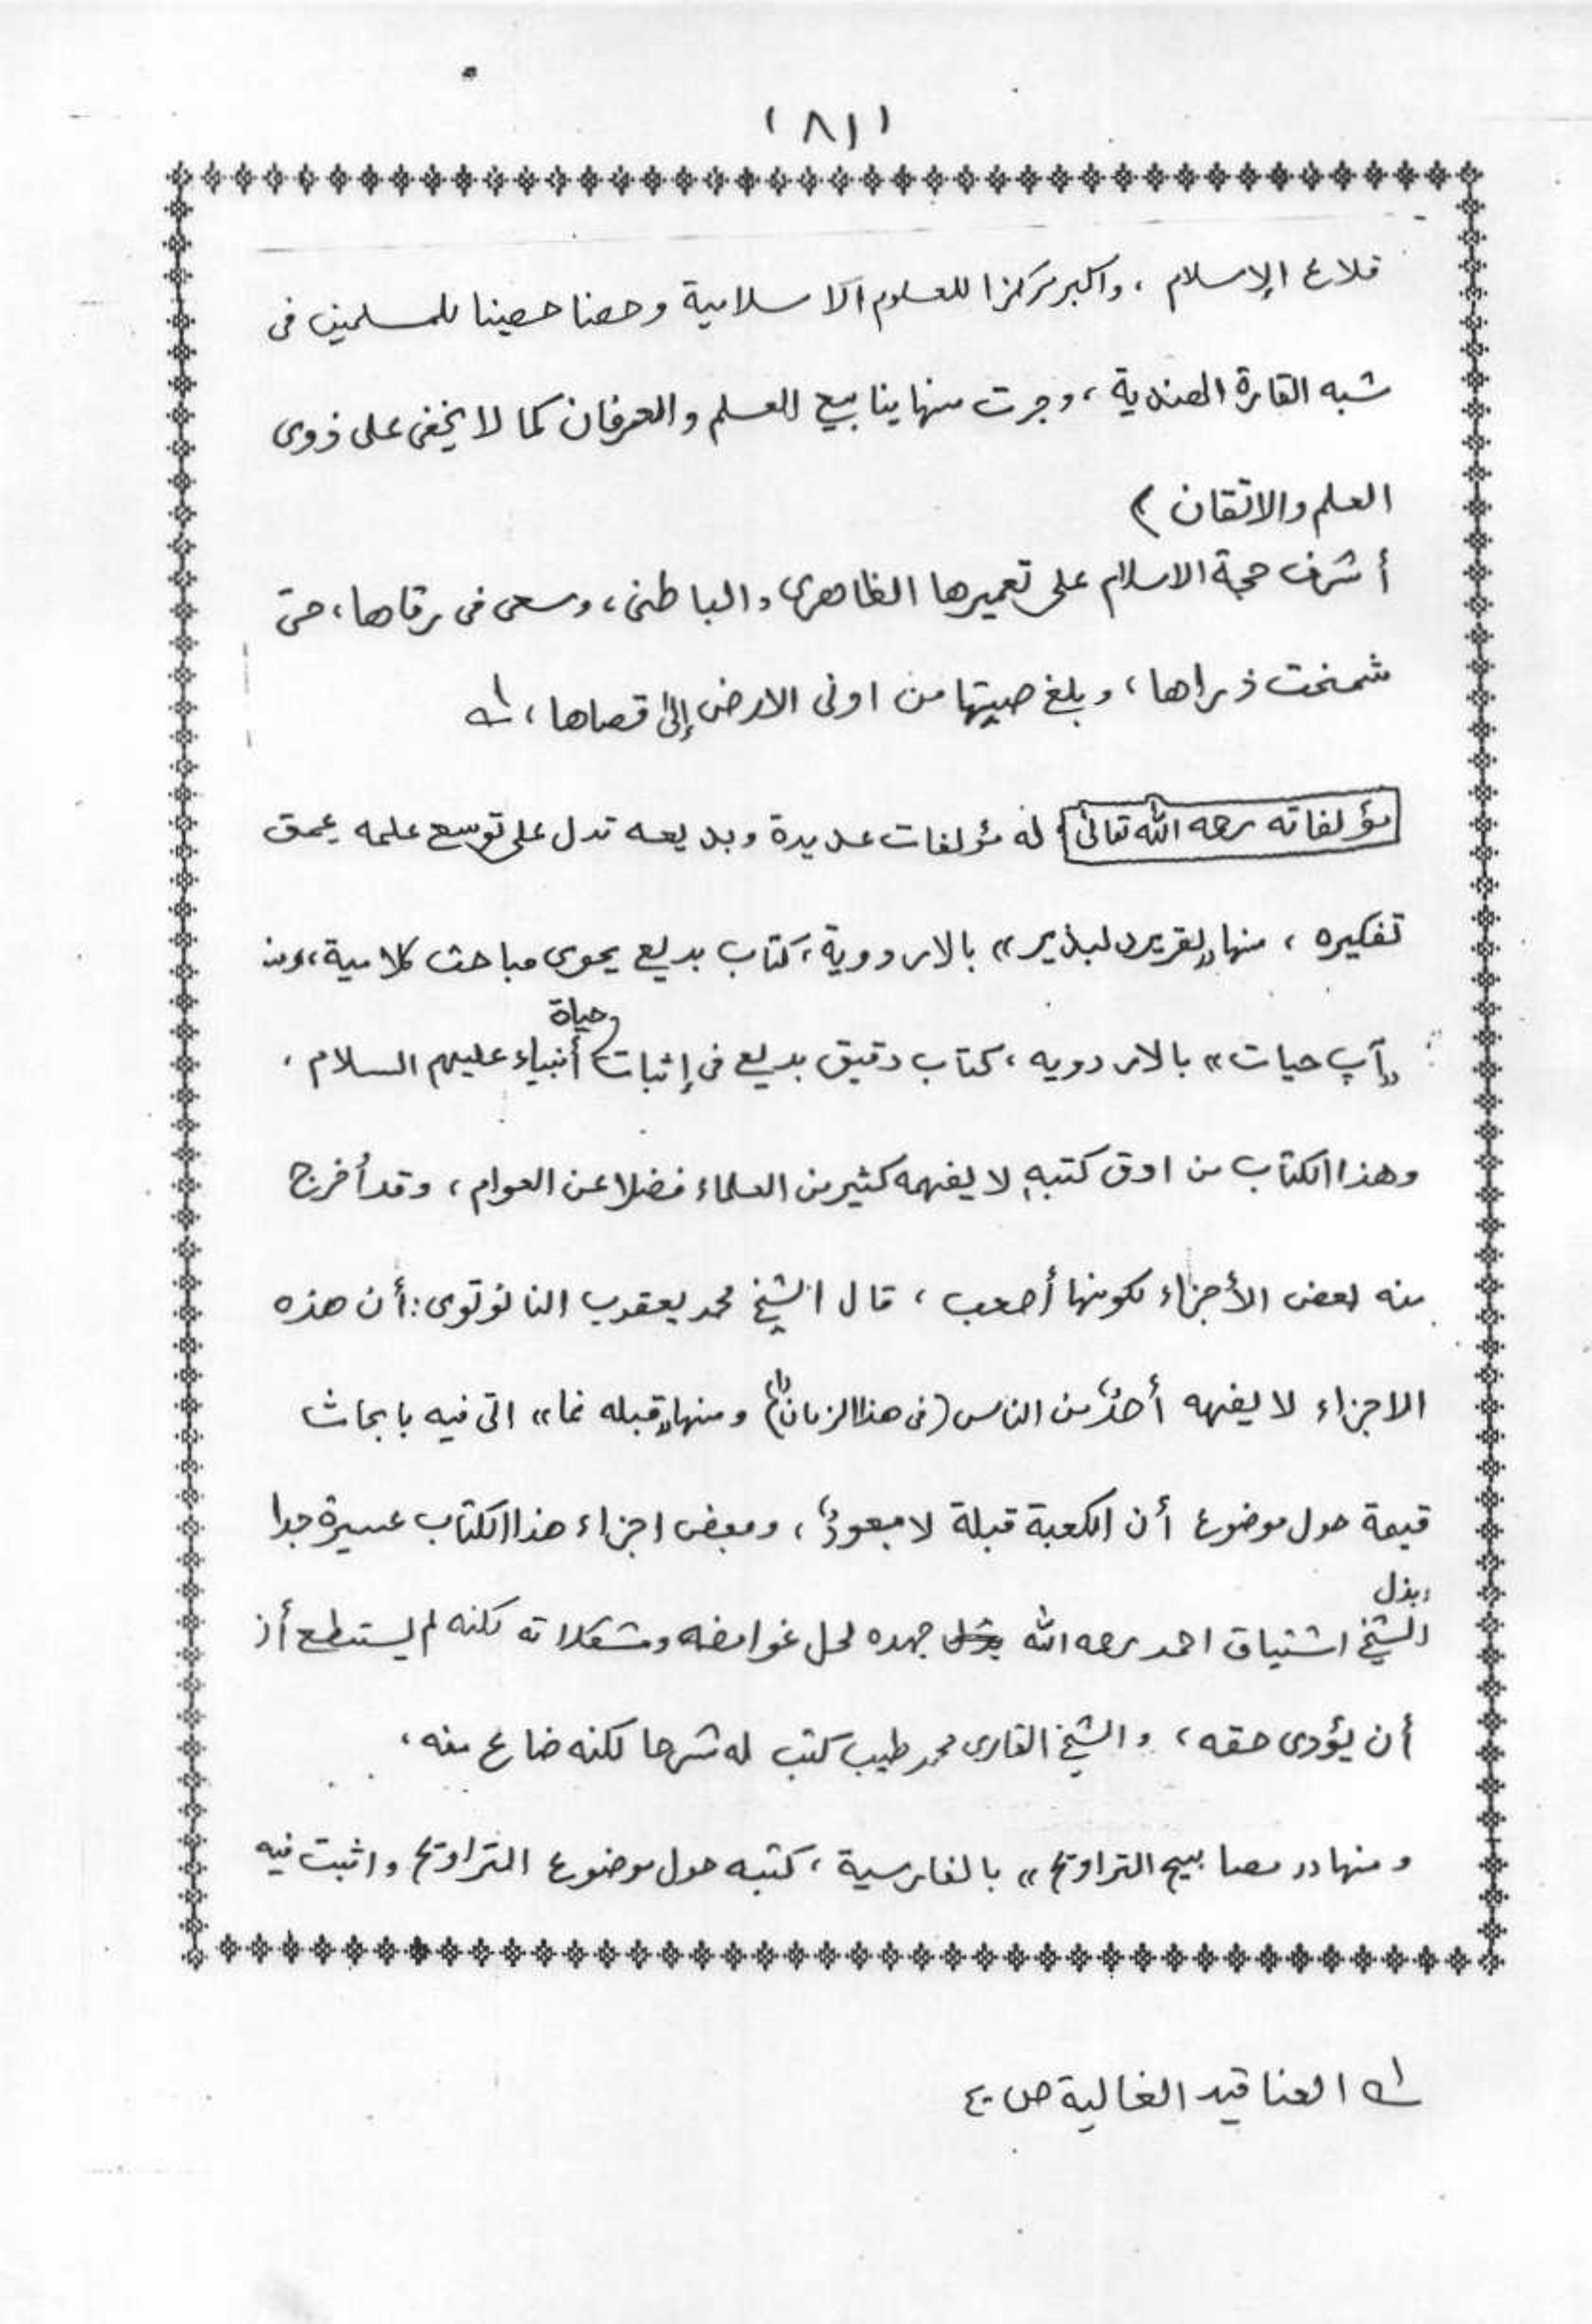 (٨١)
قلاع الإسلام ، واكبر مركزا للعلوم الاسلامية وحصنا حصينا للمسلمين فى
شبه القارة الهندية ، وجرت منها ينابيع العلم والعرفان كما لا يخفى على ذوى
العلم والاتقان )
أشرف حجة الاسلام على تعميرها الظاهرى والباطنى ، وسعى فى رقاها ، حتى
شمخت ذراها ، وبلغ صيتها من اونى الارض إلى قصاها ، لـه١
مؤلفاته رحمه الله تعالى له مؤلفات عديدة وبديعه تدل على توسع علمه عمق
تفكيره ، منها „تقرير دلبذير" بالاردوية ، كتاب بديع يحوى مباحث كلامية ، ومنه
„آپ حيات" بالاردويه ، كتاب دقيق بديع فى إثبات حياة أنبياء عليهم السلام ،
وهذا الكتاب من ادق كتبه لا يفهمه كثير من العلماء فضلا عن العوام ، وقد أخرج
منه بعض الأجزاء لكونها أصعب ، قال الشيخ محمد يعقوب النانوتوى : أن هذه
الاجزاء لا يفهه أحدٌ من الناس (فى هذا الزمان) ومنها „قبله نما" التى فيه بابحاث
قيمة حول موضوع أن الكعبة قبلة لا معبودٌ ، وبعض اجزاء هذا الكتاب عسيرة جدا
وبذل الشيخ اشتياق احمد رحمه الله جهده لحل غوامضه ومشكلاته لكنه لم يستطع أن
أن يؤدى حقه ، والشيخ القارى محمد طيب كتب له شرحا لكنه ضاع منه ،
ومنها „مصابيح التراويح" بالفارسية ، كتبه حول موضوع التراويح واثبت فيه
لـه١ العناقيد الغالية ص ٤٠